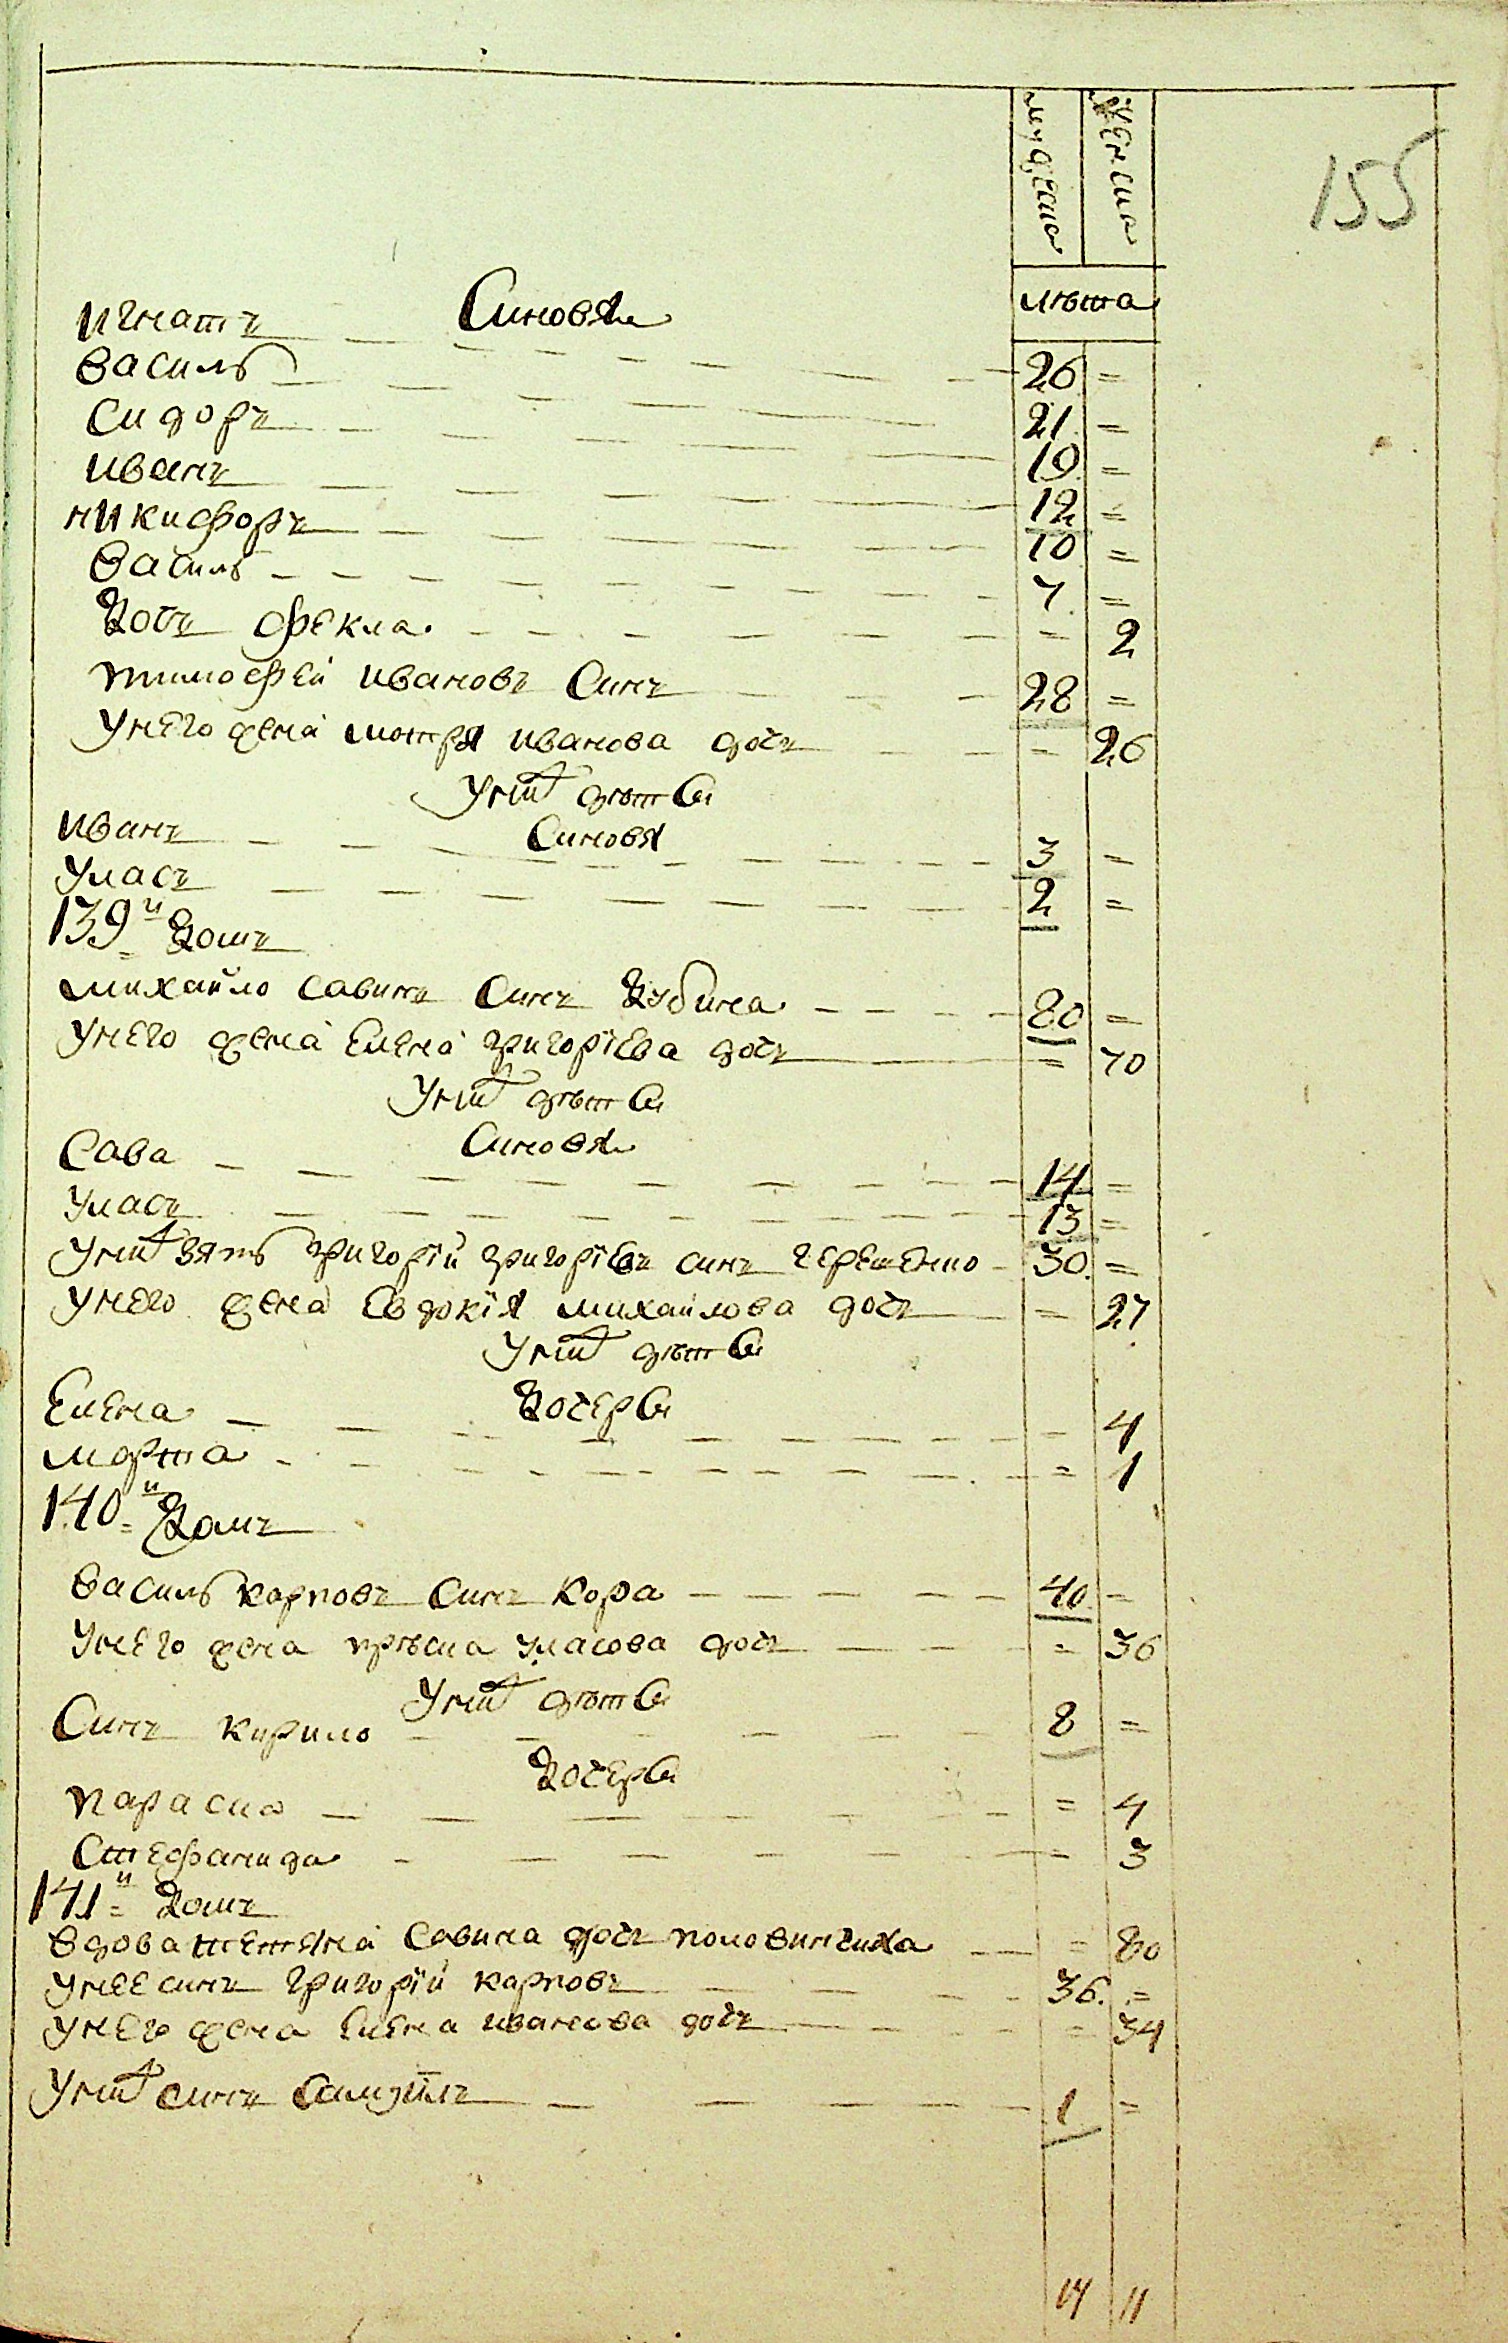 мужеска женска
155
лѣта
Синовя
игнатъ 26 =
василь 21 =
сидоръ 19 =
иванъ 12 =
никифоръ 10 =
василь 7 =
Дочъ фекла = 2
тимофей ивановъ синъ 28 =
Унего жена мотря иванова дочъ = 26
Унихъ дѣти
Синовя
иванъ 3 =
Уласъ 2 =
139й Домъ
михайло савинъ синъ Дубина 80 =
Унего жена Елена григоріева дочъ = 70
Унихъ дѣти
Синовя
Сава 14 =
Уласъ 13 =
Унихъ зять григорій григоріевъ синъ 30 =
Унего жена Евдокія михайлова дочъ = 27
Унихъ дѣти
Дочери
Елена = 4
марта = 1
140й Домъ
василь карповъ синъ Кора 40 =
Унего жена пріська уласова дочъ = 36
Унихъ дѣти
Синъ кирило 8 =
Дочери
параска = 4
Стефанида = 3
141й Домъ
вдова тетяна савина дочъ половинчиха = 80
Унее синъ григорій карповъ 36 =
Унего жена Елена иванова дочъ = 34
Унихъ синъ Самуилъ 1 =
14 11